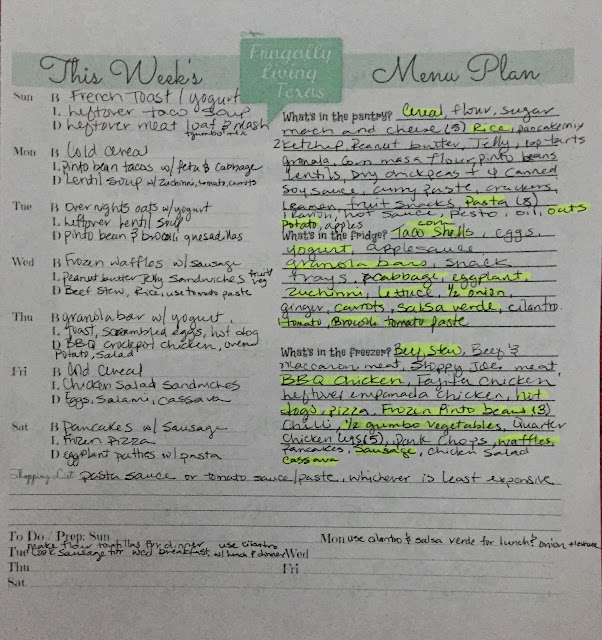 Frugally
Living
Texas
This Week's
Menu Plan
Sun B French Toast / yogurt
L leftover taco soup
D leftover meat loaf & mash
+ gumbo mix
Mon B Cold Cereal
L Pinto bean tacos w/ feta & cabbage
D Lentil Soup w/ zuchinni, tomato, carrots
Tue B Over nights oats w/ yogurt
L leftover Lentil Soup
D pinto bean & brocolli quesadillas
Wed B Frozen waffles w/ sausage
L Peanut butter Jelly Sandwiches fruit/veg
D Beef Stew, Rice, use tomato paste
Thu B granola bar w/ yogurt
L Toast, scrambled eggs, hot dog
D BBQ crockpot chicken, oven
potato, salad
Fri B Cold Cereal
L Chicken Salad Sandwiches
D Eggs, Salami, Cassava
Sat B Pancakes w/ Sausage
L Frozen Pizza
D eggplant patties w/ pasta
What's in the pantry? Cereal, flour, sugar
mach and cheese (5) Rice, pancake mix
2 Ketchup, Peanut butter, Jelly, pop-tarts
granola, Corn masa flour, pinto beans
lentils, Dry chickpeas + 4 canned
Soy sauce, curry paste, crackers,
Ramen, fruit snacks, Pasta (8)
hot sauce, pesto, oil, oats
potato, apples corn
What's in the fridge? Taco Shells, eggs,
yogurt, applesauce
granola bars, snack
trays, cabbage, eggplant,
zuchinni, lettuce, 1/2 onion,
ginger, carrots, salsa verde, cilantro.
tomato, Brocolli tomato paste
What's in the freezer? Beef, Stew, Beef &
maccaroni meat, Sloppy Joes meat,
BBQ Chicken, Fajita Chicken
leftover empanada chicken, hot
dogs, pizza, Frozen Pinto beans (3)
Chilli, 1/2 gumbo vegetables, Quarter
Chicken legs (5), Pork Chops, waffles,
pancakes, Sausage, chicken salad
Cassava
Shopping List pasta sauce or tomato sauce/paste, whichever is least expensive
To Do / Prep: Sun make flour tortillas for dinner use cilantro
Mon use cilantro & salsa verde for lunch? onion + lettuce
Tue Cook Sausage for Wed Breakfast w/ lunch & dinner Wed
Thu Fri
Sat